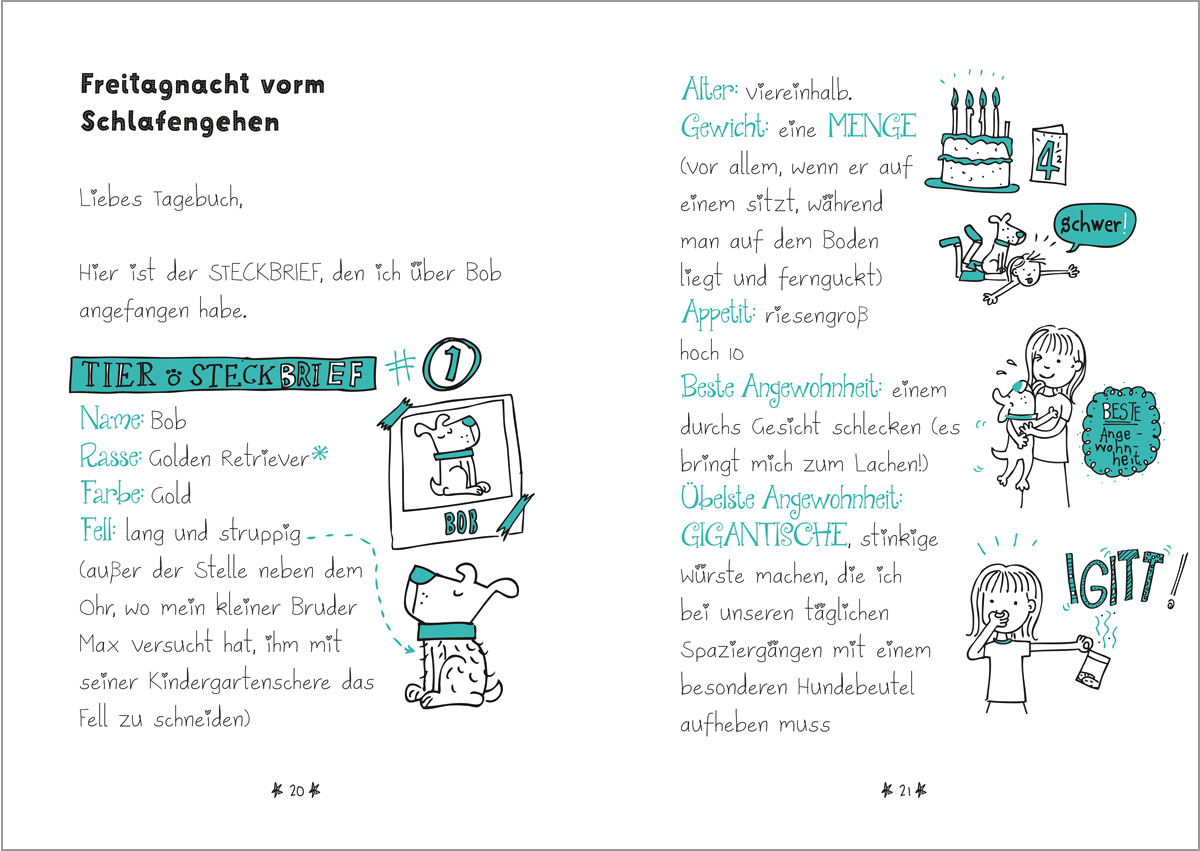 Freitagnacht vorm
Schlafengehen
Liebes Tagebuch,
Hier ist der STECKBRIEF, den ich über Bob
angefangen habe.
TIER STECKBRIEF # 1
Name: Bob
Rasse: Golden Retriever*
Farbe: Gold
Fell: lang und struppig
(außer der Stelle neben dem
Ohr, wo mein kleiner Bruder
Max versucht hat, ihm mit
seiner Kindergartenschere das
Fell zu schneiden)
BOB
20
Alter: viereinhalb.
Gewicht: eine MENGE
(vor allem, wenn er auf
einem sitzt, während
man auf dem Boden
liegt und fernguckt)
Appetit: riesengroß
hoch 10
Beste Angewohnheit: einem
durchs Gesicht schlecken (es
bringt mich zum Lachen!)
Übelste Angewohnheit:
GIGANTISCHE, stinkige
Würste machen, die ich
bei unseren täglichen
Spaziergängen mit einem
besonderen Hundebeutel
aufheben muss
4 1/2
Schwer!
BESTE
Ange-
wohn-
heit
IGITT!
21